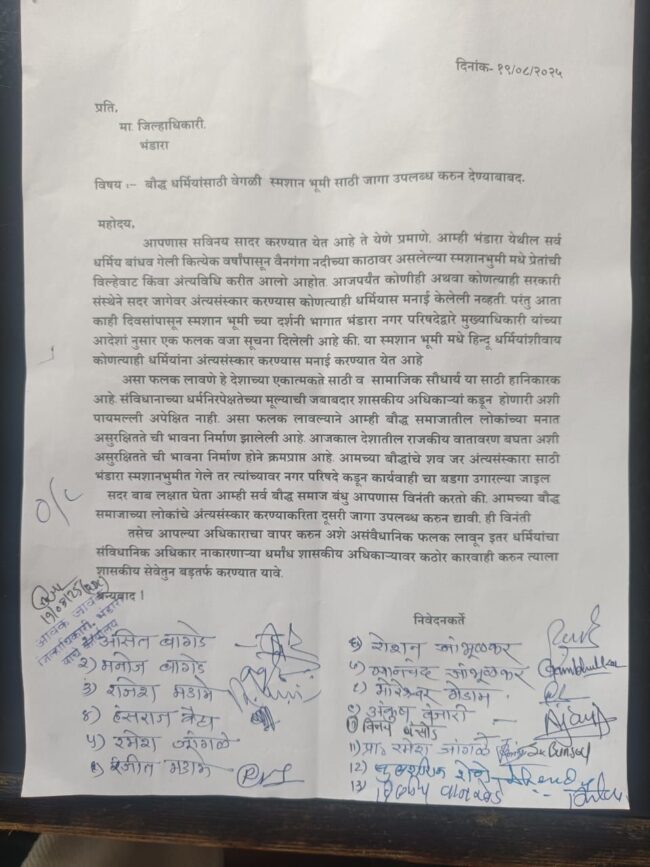 दिनांक- १९/०८/२०२५
प्रति,
मा. जिल्हाधिकारी.
भंडारा
विषय :- बौद्ध धर्मियांसाठी वेगळी स्मशान भूमी साठी जागा उपलब्ध करुन देण्याबाबद.
महोदय,
आपणास सविनय सादर करण्यात येत आहे ते येणे प्रमाणे. आम्ही भंडारा येथील सर्व
धर्मिय बांधव गेली कित्येक वर्षांपासून वैनगंगा नदीच्या काठावर असलेल्या स्मशानभुमी मधे प्रेतांची
विल्हेवाट किंवा अंत्यविधि करीत आलो आहोत. आजपर्यंत कोणीही अथवा कोणत्याही सरकारी
संस्थेने सदर जागेवर अंत्यसंस्कार करण्यास कोणत्याही धर्मियास मनाई केलेली नव्हती. परंतु आता
काही दिवसांपासून स्मशान भुमी च्या दर्शनी भागात भंडारा नगर परिषदेद्वारे मुख्याधिकारी यांच्या
आदेशां नुसार एक फलक वजा सूचना दिलेली आहे की. या स्मशान भूमी मधे हिन्दू धर्मियांशीवाय
कोणत्याही धर्मियांना अंत्यसंस्कार करण्यास मनाई करण्यात येत आहे
असा फलक लावणे हे देशाच्या एकात्मकते साठी व सामाजिक सौधार्य या साठी हानिकारक
आहे. संविधानाच्या धर्मनिरपेक्षतेच्या मूल्याची जवाबदार शासकीय अधिकाऱ्यां कडून होणारी अशी
पायमल्ली अपेक्षित नाही. असा फलक लावल्याने आम्ही बौद्ध समाजातील लोकांच्या मनात
असुरक्षितते ची भावना निर्माण झालेली आहे. आजकाल देशातील राजकीय वातावरण बघता अशी
असुरक्षितते ची भावना निर्माण होने क्रमप्राप्त आहे. आमच्या बौद्धांचे शव जर अंत्यसंस्कारा साठी
भंडारा स्मशानभुमीत गेले तर त्यांच्यावर नगर परिषदे कडून कार्यवाही चा बडगा उगारल्या जाइल
सदर बाब लक्षात घेता आम्ही सर्व बौद्ध समाज बंधु आपणास विनंती करतो की. आमच्या बौद्ध
समाजाच्या लोकांचे अंत्यसंस्कार करण्याकरिता दूसरी जागा उपलब्ध करुन द्यावी. ही विनंती
तसेच आपल्या अधिकाराचा वापर करुन अशे असंवैधानिक फलक लावून इतर धर्मियांचा
संविधानिक अधिकार नाकारणाऱ्या धर्मांध शासकीय अधिकाऱ्यावर कठोर कारवाही करुन त्याला
शासकीय सेवेतुन बड़तर्फ करण्यात यावे.
धन्यबाद !
निवेदनकर्ते
O/C
जिल्हाधिकारी, भंडारा
यांचे कार्यालय
असित बागडे
२) मनोज बागडे
३) राजेश मडामे
४) हंसराज वैद्य
५) रमेश जांगळे
रंजीत मडामे
रोशन जांभूळकर
ज्ञानचंद जांभूळकर
मोरेश्वर गेडाम
अंकुश वंजारी
विनय बंसोड
11) प्रा. रमेश जांगळे
12)
13)